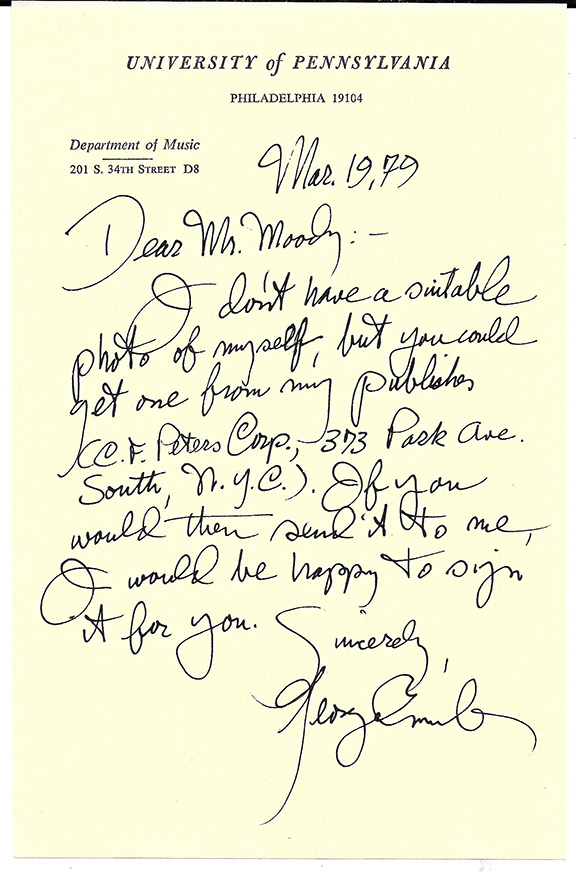 UNIVERSITY of PENNSYLVANIA
PHILADELPHIA 19104
Department of Music
201 S. 34TH STREET D8
Mar. 19, 79
Dear Mr. Moody:—
I don't have a suitable
photo of myself, but you could
get one from my publisher
(C.F. Peters Corp., 373 Park Ave.
South, N.Y.C.). If you
would then send it to me,
I would be happy to sign
it for you.
Sincerely,
George Crumb